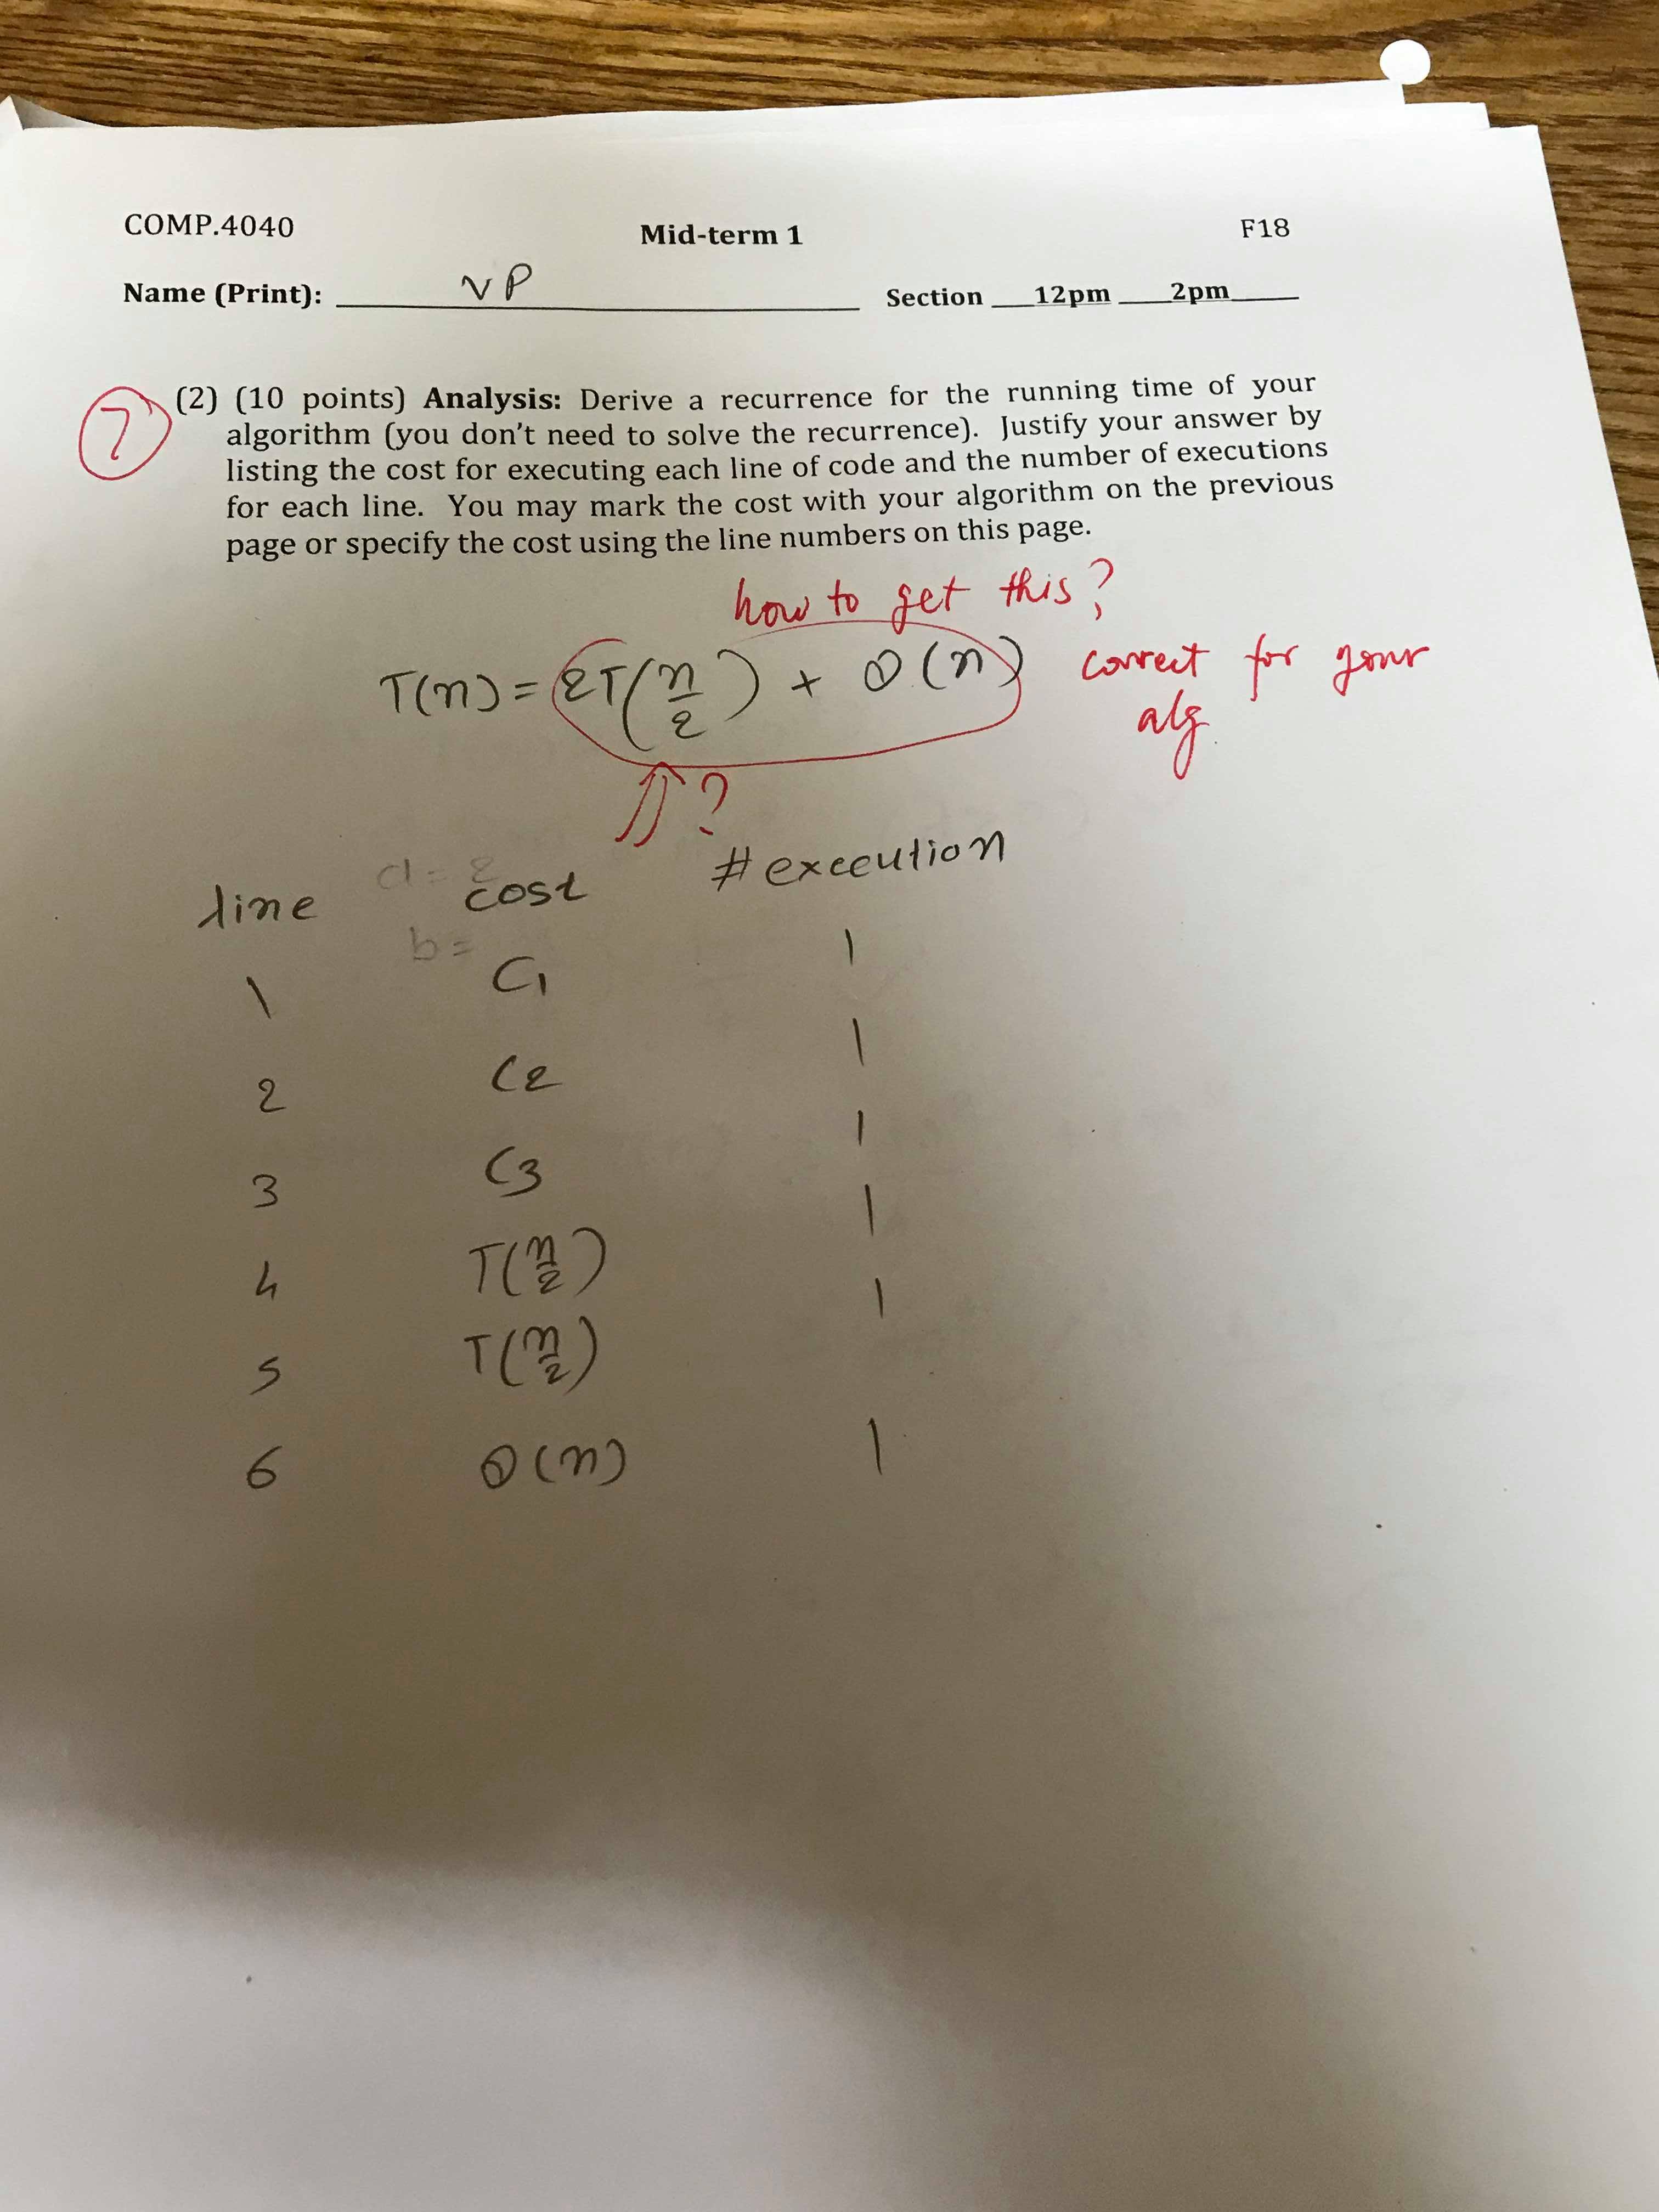 COMP.4040 Mid-term 1 F18
Name (Print): VP Section 12pm 2pm
7 (2) (10 points) Analysis: Derive a recurrence for the running time of your
algorithm (you don't need to solve the recurrence). Justify your answer by
listing the cost for executing each line of code and the number of executions
for each line. You may mark the cost with your algorithm on the previous
page or specify the cost using the line numbers on this page.
how to get this?
T(n) = 2T(n/2) + Θ(n) correct for your
alg.
⇑ ?
a = 2
line cost #execution
b =
1 C1 1
2 C2 1
3 C3 1
4 T(n/2) 1
5 T(n/2) 1
6 Θ(n) 1